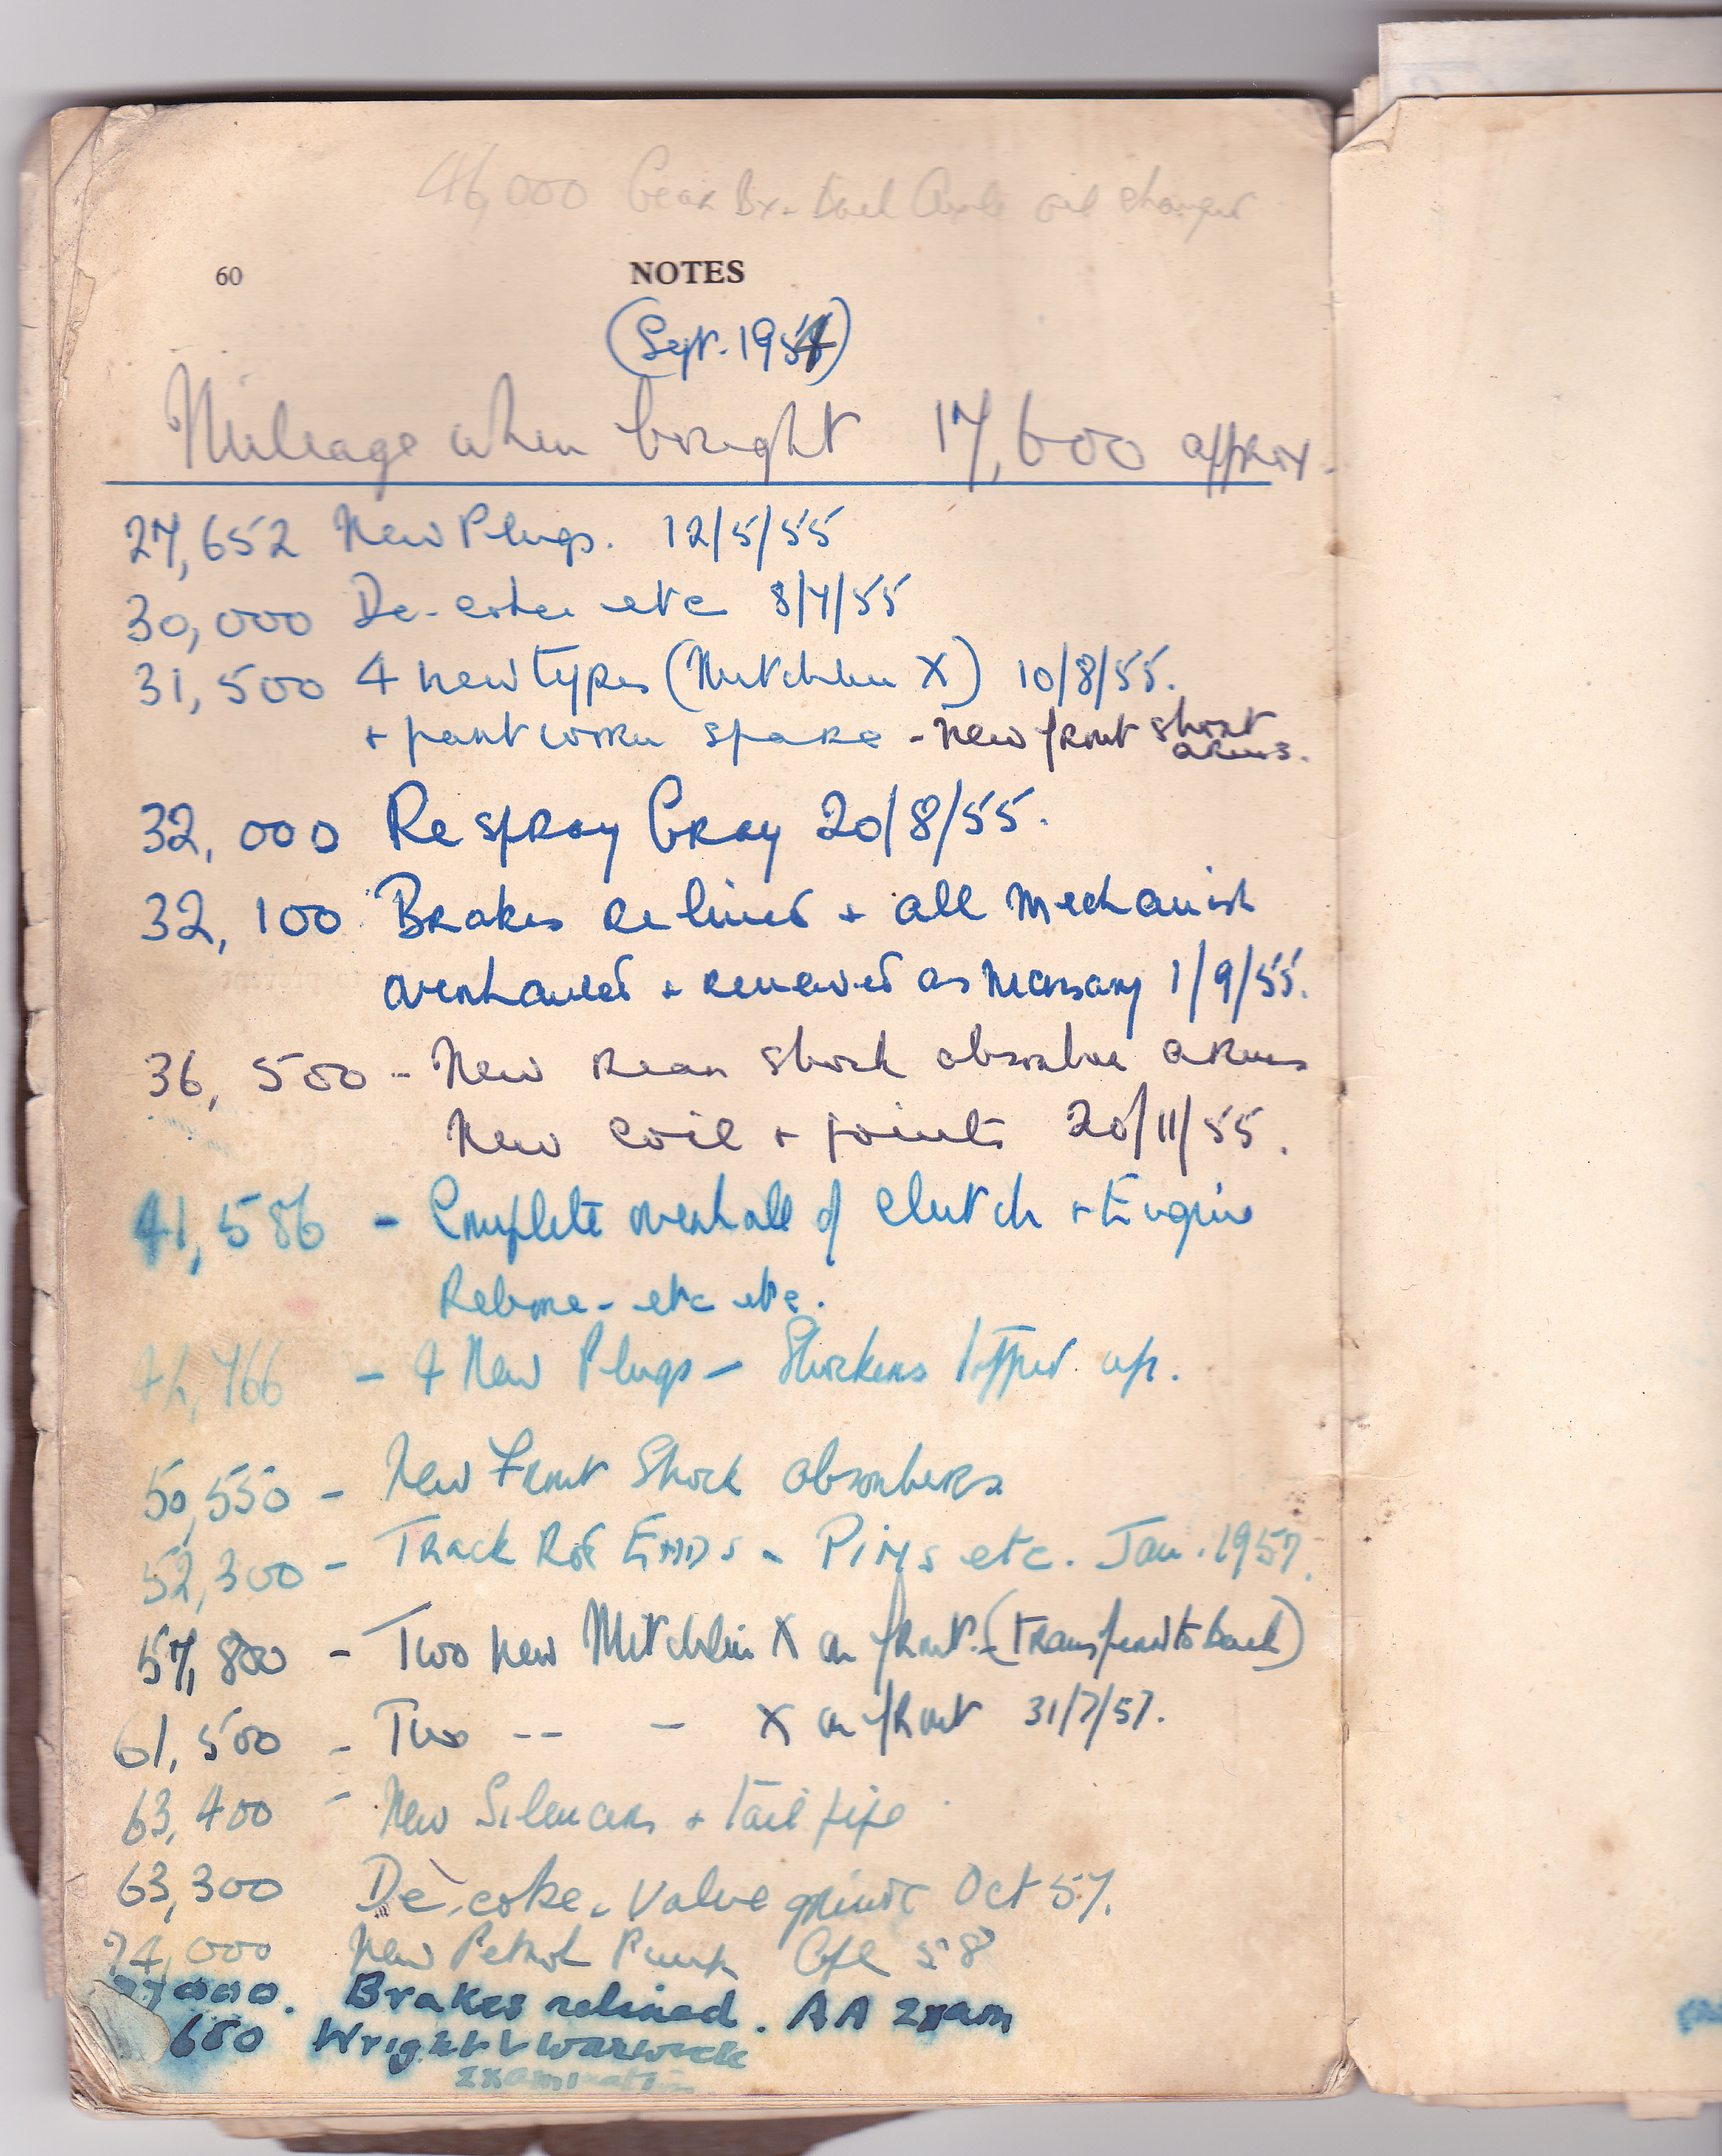 46,000 Gear Bx + Back Axle oil changed
60 NOTES
(Sept. 1954)
Mileage when bought 17,600 approx.
27,652 New Plugs. 12/5/55
30,000 De-coke etc 8/7/55
31,500 4 new tyres (Mitchlin X) 10/8/55.
+ part worn spare - New front shock
arms.
32,000 Re spray Gray 20/8/55.
32,100 Brakes relined + all Mechanism
overhauled + renewed as necessary 1/9/55.
36,500 - New rear shock absorber arms
New coil + points 20/11/55.
41,586 - Complete overhall of Clutch + Engine
Rebore - etc etc.
766 - 4 New Plugs - Shockers topped up.
50,550 - New Front Shock absorbers
52,300 - Track Rod Ends - Pins etc. Jan. 1957.
57,800 - Two new Mitchlin X on front. - (transferred to back)
61,500 - Two -- - X on front 31/7/57.
63,400 - New Silencers + tail pipe
63,300 De-coke. Valve grind Oct 57.
74,000 New Petrol Pump 58
000. Brakes relined. AA Exam
650 Wright & Warwick
Examination